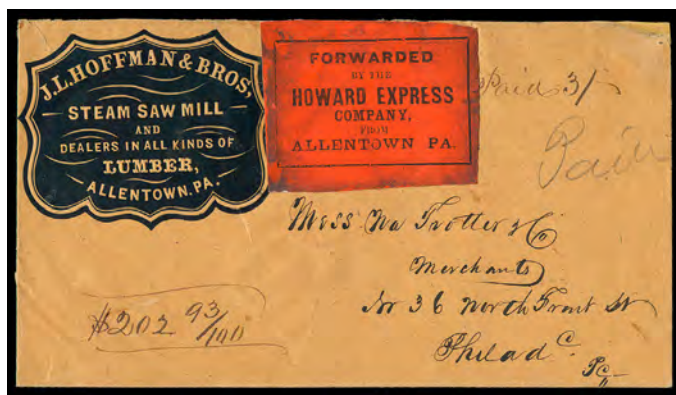 J.L. HOFFMAN & BROS,
STEAM SAW MILL
AND
DEALERS IN ALL KINDS OF
LUMBER,
ALLENTOWN. PA.
FORWARDED
BY THE
HOWARD EXPRESS
COMPANY,
FROM
ALLENTOWN PA.
Paid 3/-
Paid
Mess Na Trotter & Co
Merchants
No 36 North Front St
Philad a.
Pa
$202 93/100